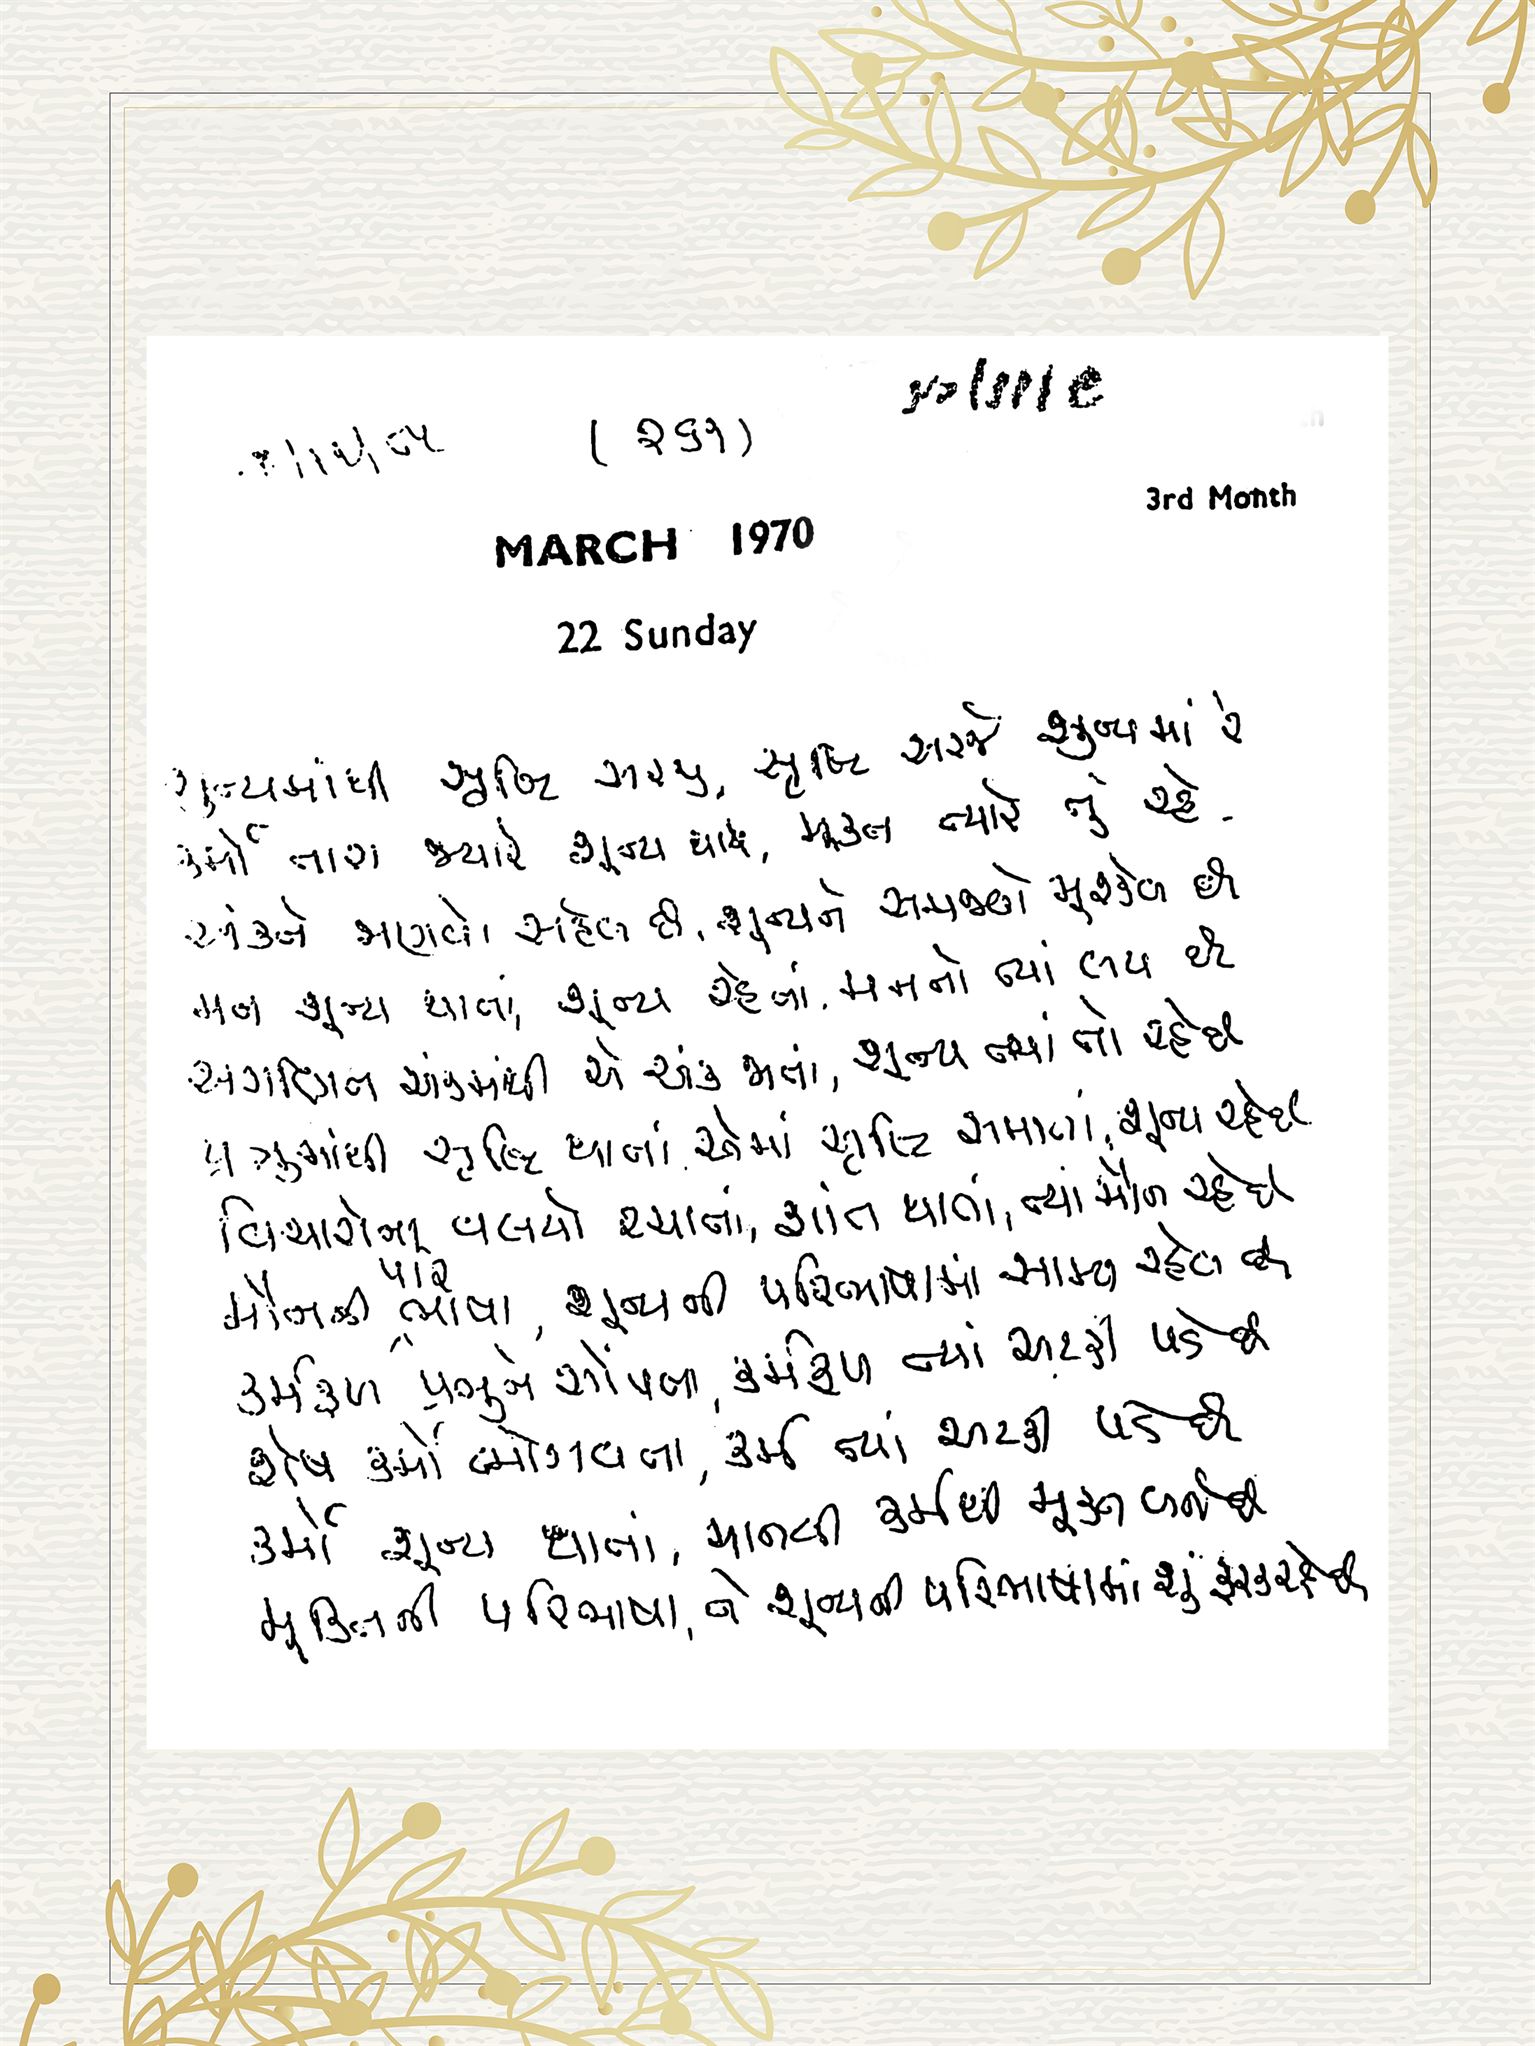 (૨૬૧)
3rd Month
MARCH 1970
22 Sunday
શુન્યમાંથી સૃષ્ટિ સરજી, સૃષ્ટિ સરજે શુન્યમાં રે
કર્મો તારા જ્યારે શૂન્ય થાય, મૂકત ત્યારે તું રહે.
અંકને ભણવો સહેલ છે, શૂન્યને સમજવો મૂશ્કેલ છે
મન શૂન્ય થાતાં, શૂન્ય રહેતાં, મનનો ત્યાં લય છે
અગણિત અંકમાંથી એ અંક જાતાં, શૂન્ય ત્યાં તો રહે છે
પ્રભુમાંથી સૃષ્ટિ થાતાં એમાં સૃષ્ટિ સમાતાં, શૂન્ય રહે છે
વિચારોના વલયો રચાતાં, શાંત થાતાં, ત્યાં મૌન રહે છે
મૌનની પરિભાષા, શૂન્યની પરિભાષામાં સામ્ય રહેલ છે
કર્મફળ પ્રભુને સોંપતા, કર્મફળ ત્યાં અટકી પડે છે
શેષ કર્મો ભોગવતા, કર્મ ત્યાં અટકી પડે છે
કર્મો શૂન્ય થાતાં, માનવી કર્મથી મૂકત બને છે
મૂકિતની પરિભાષા, ને શૂન્યની પરિભાષામાં શું ફરક રહે છે